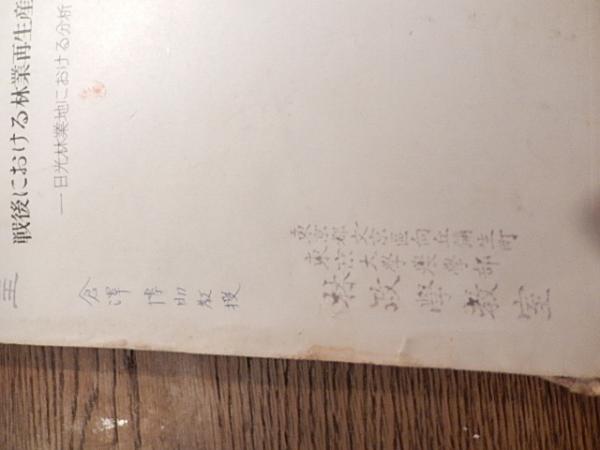 戦後における林業再生産
―日光林業地における分析
倉澤博助教授
東京都文京区向丘弥生町
東京大学農学部
林政学教室